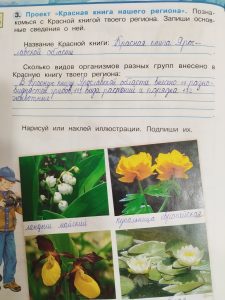 3. Проект «Красная книга нашего региона». Позна-
комься с Красной книгой твоего региона. Запиши основ-
ные сведения о ней.
Название Красной книги: Красная книга Яро-
славской области
Сколько видов организмов разных групп внесено в
Красную книгу твоего региона:
В Красную книгу Ярославской области внесено
видов грибов, вида растений и порядка 172
животные!
Нарисуй или наклей иллюстрации. Подпиши их.
ландыш майский
купальница европейская